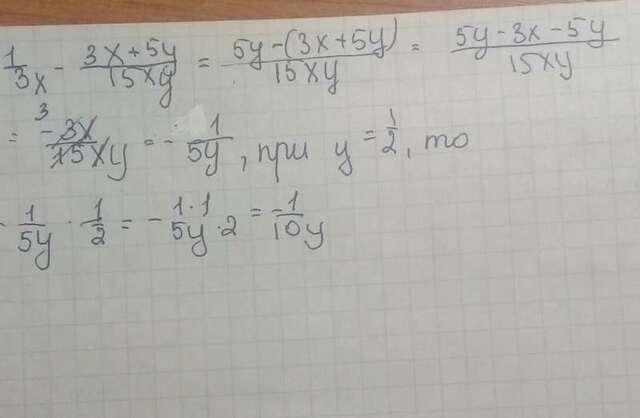 1/3x - (3x+5y)/15xy = (5y-(3x+5y))/15xy = (5y-3x-5y)/15xy
= -3x/15xy = -1/5y, при y = 1/2, то
-1/5y · 1/2 = -(1·1)/(5y·2) = -1/10y